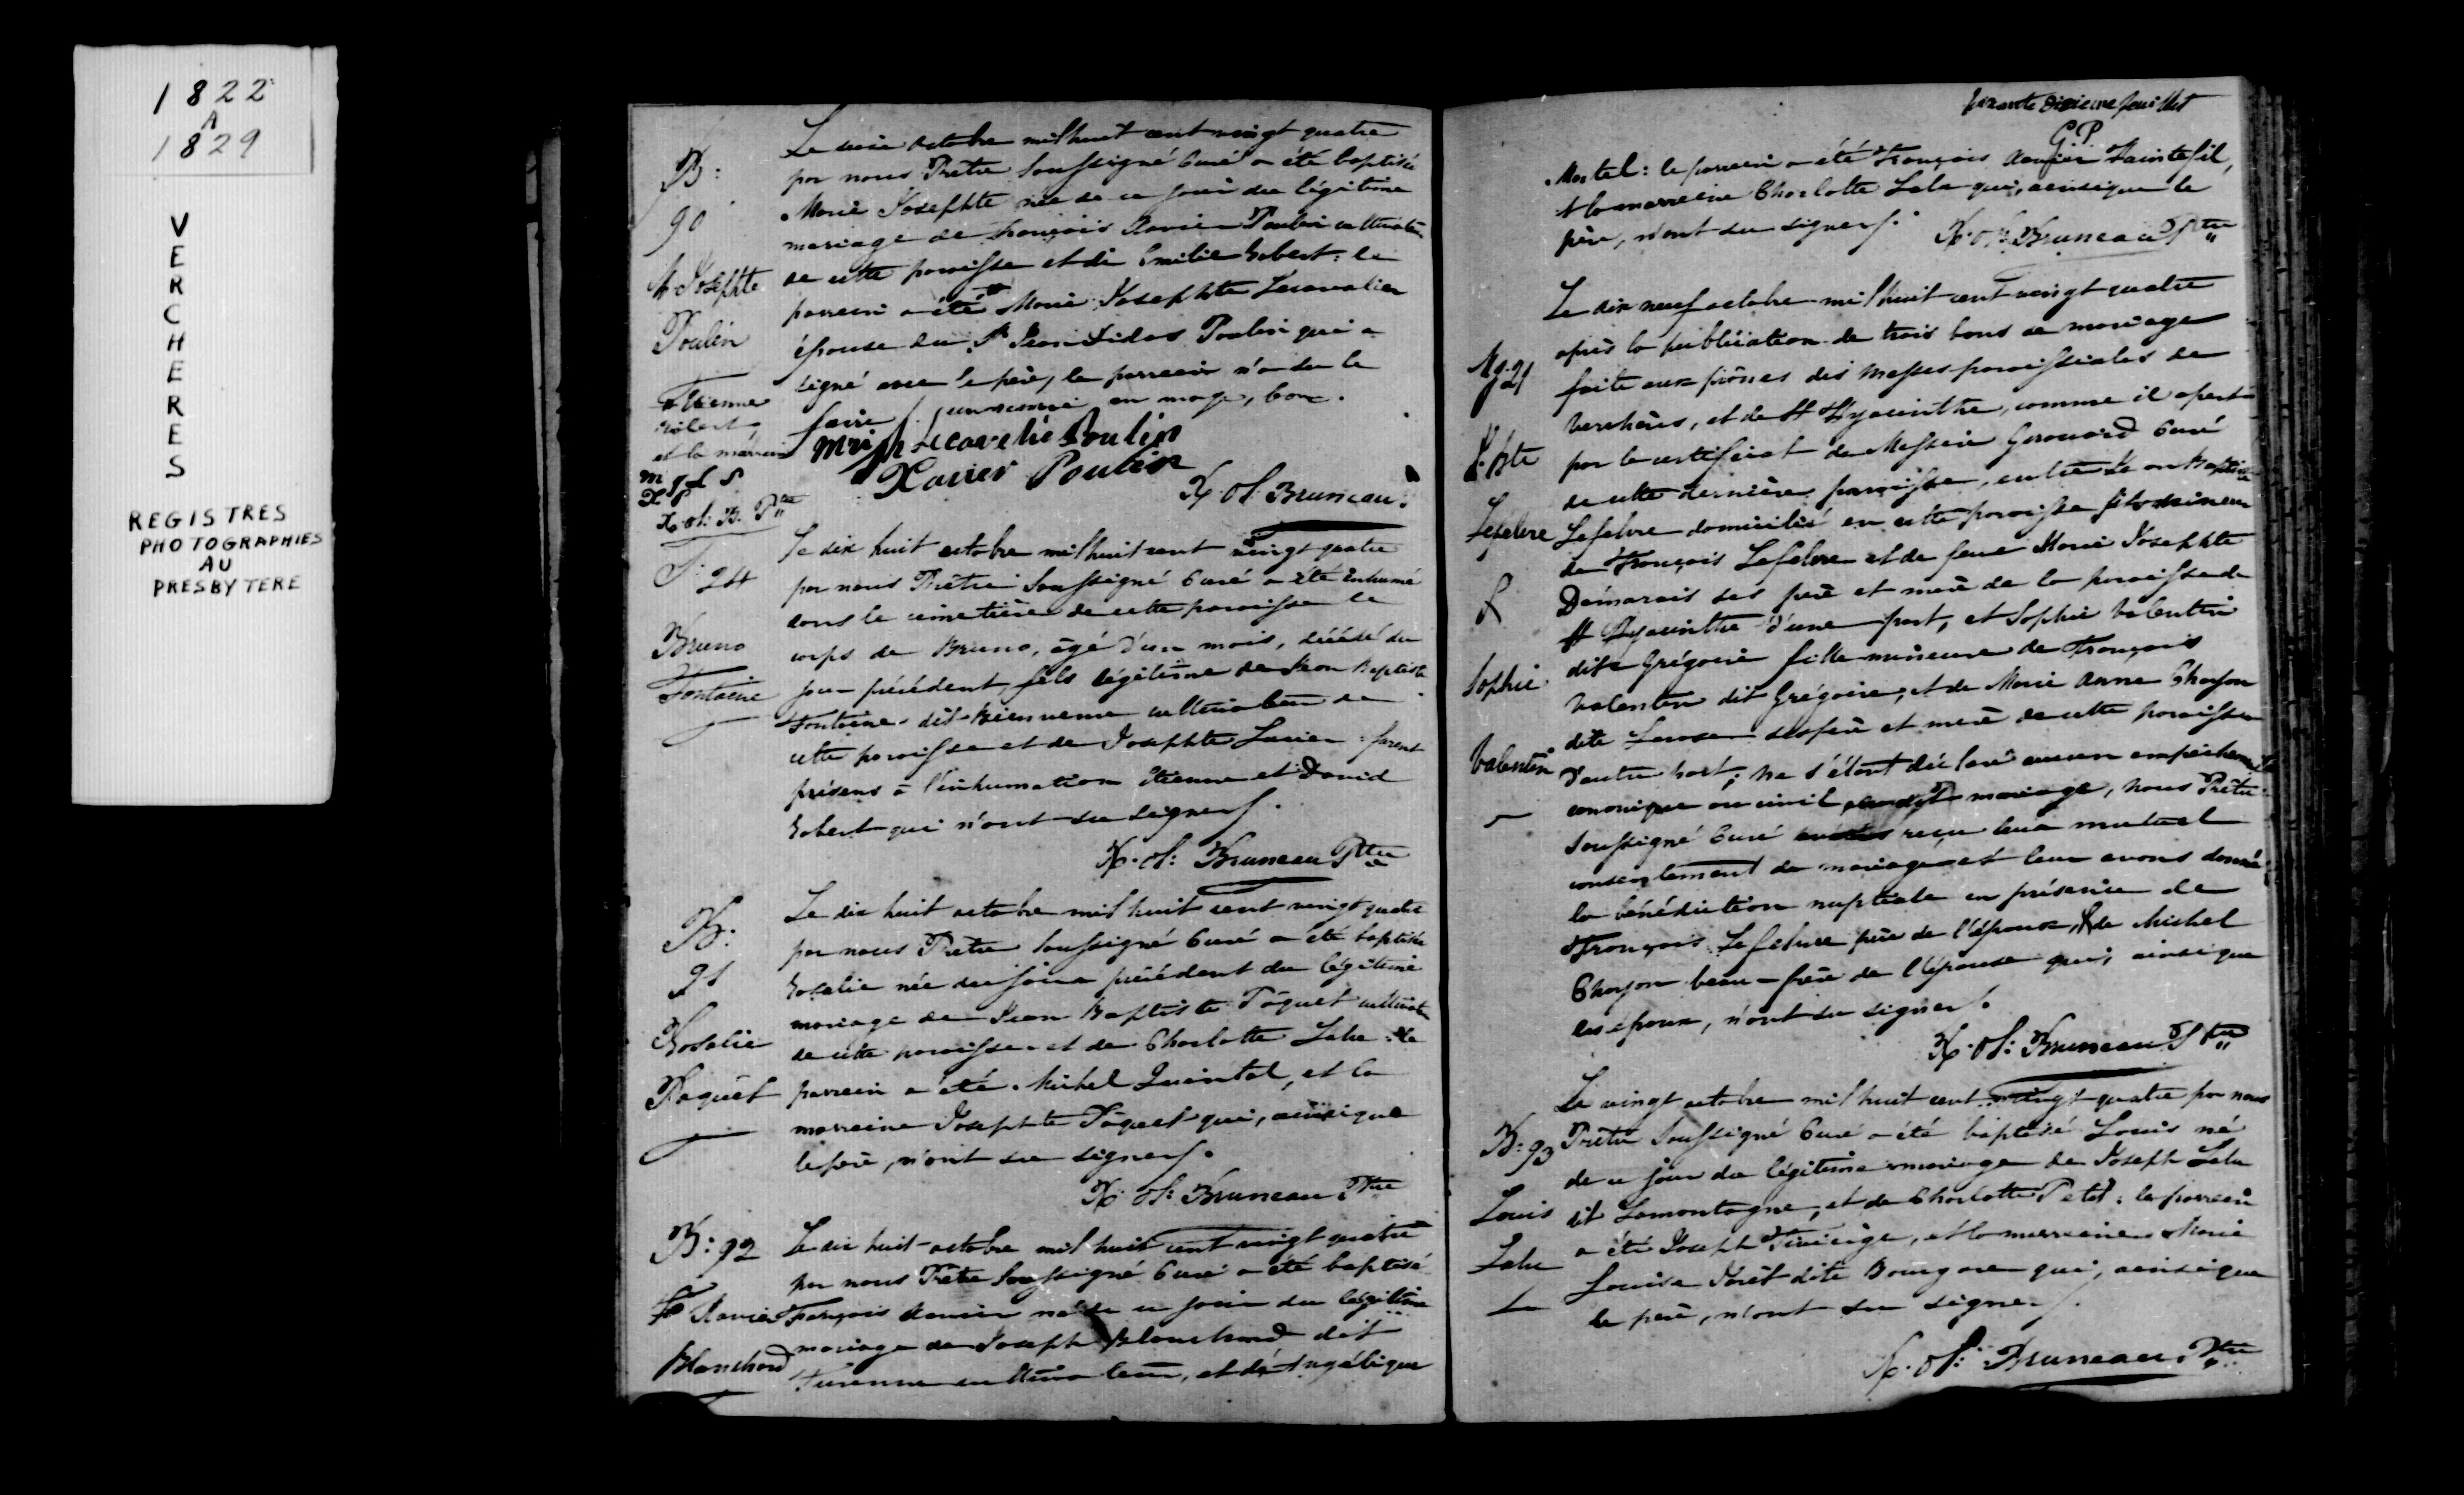 1822
A
1829
VERCHERES
REGISTRES
PHOTOGRAPHIES
AU
PRESBYTERE
B:
90
M. Josephte
Poulin
Le seize octobre mil huit cent vingt quatre
par nous Prêtre soussigné Curé a été baptisée
Marie Josephte née de ce jour du légitime
mariage de François Xavier Poulin cultivateur
de cette paroisse et de Emilie Robert: le
parrain a été # Marie Josephte Lecavalier
épouse du Sr Jean Poulin qui a
signé avec le père, le parrain n'a su le
faire. un renvoi en marge, bon.
Etienne
Robert,
et la marraine
m j l P
X P
X. of: B. Ptre
Mrie jh Lecavelié Poulin
Xavier Poulin
X. of: Bruneau
S: 24
Bruno
Fontaine
Le dix huit octobre mil huit cent vingt quatre
par nous Prêtre soussigné Curé a été inhumé
dans le cimetière de cette paroisse le
corps de Bruno, âgé d'un mois, décédé du
jour précédent, fils légitime de Jean Baptiste
Fontaine dit Bienvenue cultivateur de
cette paroisse et de Josephte Lucier: furent
présens à l'inhumation Etienne et David
Robert qui n'ont su signer.
X. of: Bruneau Ptre
B:
91
Rosalie
Paquet
Le dix huit octobre mil huit cent vingt quatre
par nous Prêtre soussigné Curé a été baptisée
Rosalie née du jour précédent du légitime
mariage de Jean Baptiste Pâquet cultivateur
de cette paroisse et de Charlotte Lalu: le
parrain a été Michel Quintal, et la
marraine Josephte Pâquet qui, ainsi que
le père, n'ont su signer.
X. of: Bruneau Ptre
B: 92
F Xavier
Blanchard
Le dix huit octobre mil huit cent vingt quatre
par nous Prêtre soussigné Curé a été baptisé
François Xavier né de ce jour du légitime
mariage de Joseph Blanchard dit
Turenne cultivateur, et de Angélique
dixieme feuillet
G.P.
Martel: le parrain a été François Xavier
et la marraine Charlotte Lalu qui, ainsi que le
père, n'ont su signer.
X. of: Bruneau Ptre
M: 21
J. Bte
Lefebvre
&
Sophie
Valentin
Le dix neuf octobre mil huit cent vingt quatre
après la publication de trois bans de mariage
faite aux prônes des Messes paroissiales de
Verchères, et de St Hyacinthe, comme il apert
par le certificat de Messire Girouard Curé
de cette dernière paroisse, entre Jean Baptiste
Lefebvre domicilié en cette paroisse fils mineur
de François Lefebvre et de feue Marie Josephte
Démarais ses père et mère de la paroisse de
St Hyacinthe d'une part, et Sophie Valentin
dite Grégoire fille mineure de François
Valentin dit Grégoire, et de Marie Anne Charon
dite Larose ses père et mère de cette paroisse
d'autre part; ne s'étant déclaré aucun empêchement
canonique ou civil mariage, nous Prêtre
soussigné Curé avons reçu leur mutuel
consentement de mariage et leur avons donné
la bénédiction nuptiale en présence de
François Lefebvre père de l'époux, & de Michel
Charon beau-frère de l'épouse qui, ainsi que
les époux, n'ont su signer.
X. of: Bruneau Ptre
B: 93
Louis
Lalu
Le vingt octobre mil huit cent vingt quatre par nous
Prêtre soussigné Curé a été baptisé Louis né
de ce jour du légitime mariage de Joseph Lalu
dit Lamontagne, et de Charlotte Petit: le parrain
a été Joseph Vivierge, et la marraine Marie
Louise dite qui, ainsi que
le père, n'ont su signer.
X. of: Bruneau Ptre